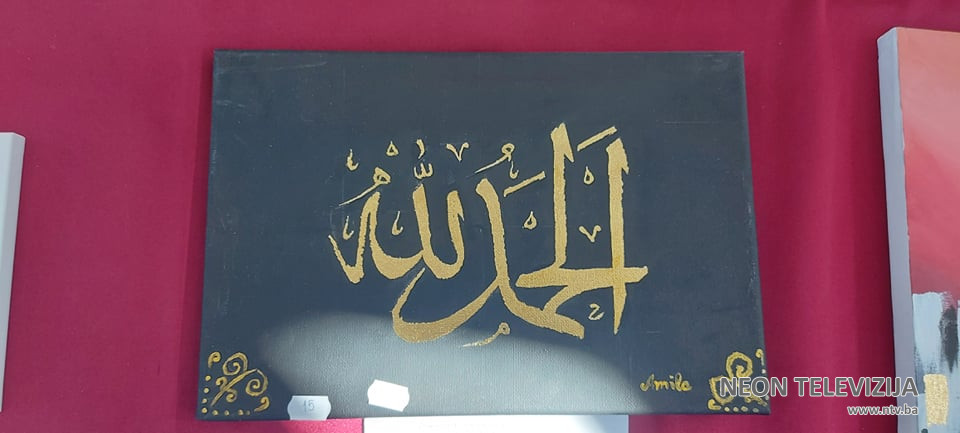 الحمد لله
Amila
15
NEON TELEVIZIJA
www.ntv.ba